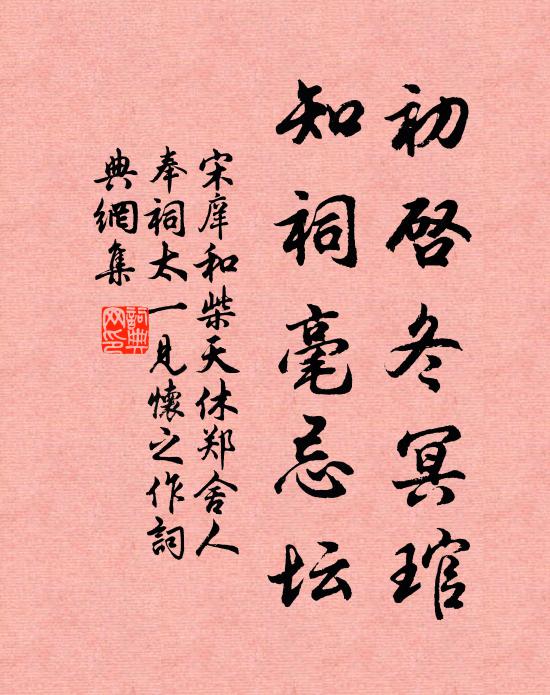 初启冬冥琯
知祠毫忌坛
宋庠和柴天休郑舍人
奉祠太一见怀之作詞
典網集
詞典网印